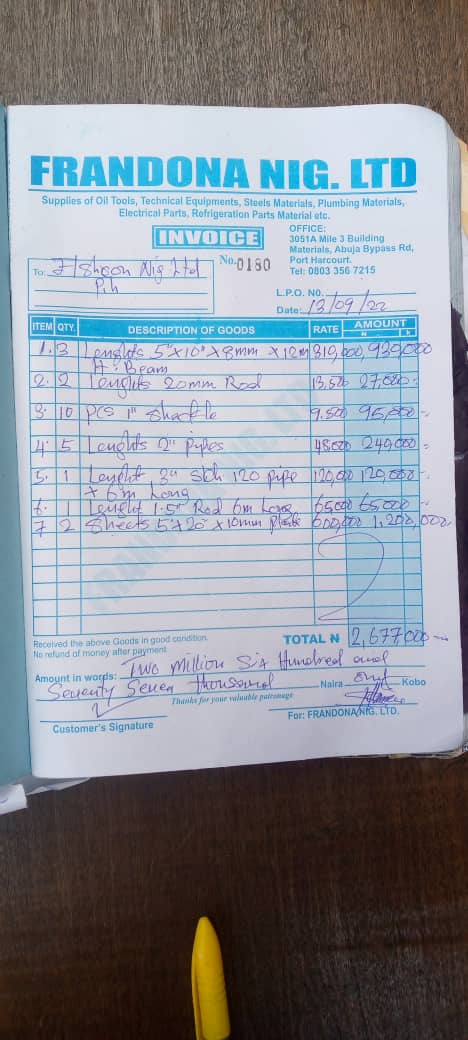 FRANDONA NIG. LTD
Supplies of Oil Tools, Technical Equipments, Steels Materials, Plumbing Materials,
Electrical Parts, Refrigeration Parts Material etc.
INVOICE
No. 0180
OFFICE:
3051A Mile 3 Building
Materials, Abuja Bypass Rd,
Port Harcourt.
Tel: 0803 356 7215
To: Nig Ltd
L.P.O. NO.
Date: 13/09/22
ITEM QTY. DESCRIPTION OF GOODS RATE AMOUNT
N K
1. 3 Lenghts 5"x10"x8mm x12m 310,000 930,000
H. Beam
2. 2 Lenghts 20mm Rod 13,500 27,000
3. 10 pcs 1" Shackle 9.500 95,000
4. 5 Lenghts 2" pipes 48000 240,000
5. 1 Lenght 3" Sch 120 pipe 120,000 120,000
x 6m Long
6. 1 Lenght 1.5" Rod 6m Long 65,000 65,000
7 2 Sheets 5x20 x10mm plate 600,000 1,200,000
TOTAL N 2,677,000
Received the above Goods in good condition.
No refund of money after payment
Amount in words: Two million Six Hundred and
Seventy Seven thousand Naira only Kobo
Thanks for your valuable patronage
Customer's Signature
For: FRANDONA NIG. LTD.